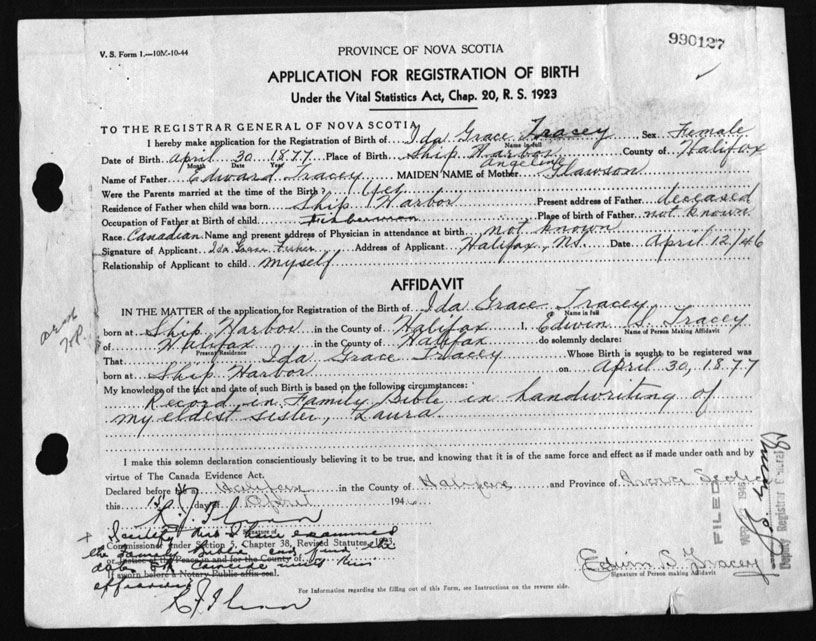 V. S. Form 1.—10M-10-44
990127
PROVINCE OF NOVA SCOTIA
APPLICATION FOR REGISTRATION OF BIRTH
Under the Vital Statistics Act, Chap. 20, R. S. 1923
TO THE REGISTRAR GENERAL OF NOVA SCOTIA
I hereby make application for the Registration of Birth of Ida Grace Tracey Sex Female
Name in full
Date of Birth April 30 1877 Place of Birth Ship Harbor County of Halifax
Month Date Year
Angeline
Name of Father Edward Tracey MAIDEN NAME of Mother Glawson
Were the Parents married at the time of the Birth? Yes
Residence of Father when child was born Ship Harbor Present address of Father deceased
Occupation of Father at Birth of child Fisherman Place of birth of Father not known
Race Canadian Name and present address of Physician in attendance at birth not known
Signature of Applicant Ida Grace Fisher Address of Applicant Halifax, NS. Date April 12/46
Relationship of Applicant to child myself
AFFIDAVIT
IN THE MATTER of the application for Registration of the Birth of Ida Grace Tracey
Name in full
born at Ship Harbor in the County of Halifax I, Edwin S. Tracey
Name of Person Making Affidavit
of Halifax in the County of Halifax do solemnly declare:
Present Residence
That Ida Grace Tracey Whose Birth is sought to be registered was
born at Ship Harbor on April 30, 1877
My knowledge of the fact and date of such Birth is based on the following circumstances:
Record in Family Bible in handwriting of
my eldest sister, Laura.
I make this solemn declaration conscientiously believing it to be true, and knowing that it is of the same force and effect as if made under oath and by
virtue of The Canada Evidence Act.
Declared before me Halifax in the County of Halifax and Province of Nova Scotia
this day of April 1946
Signature of
Commissioner under Section 5, Chapter 38, Revised Statutes, 1923.
or Justice of the Peace in and for the County of
If sworn before a Notary Public affix seal.
I certify that I have examined
the family Bible and find the
dates to coincide with this
affidavit
FILED
1946
Deputy Registrar General
Edwin S. Tracey
Signature of Person making Affidavit
For Information regarding the filling out of this Form, see Instructions on the reverse side.